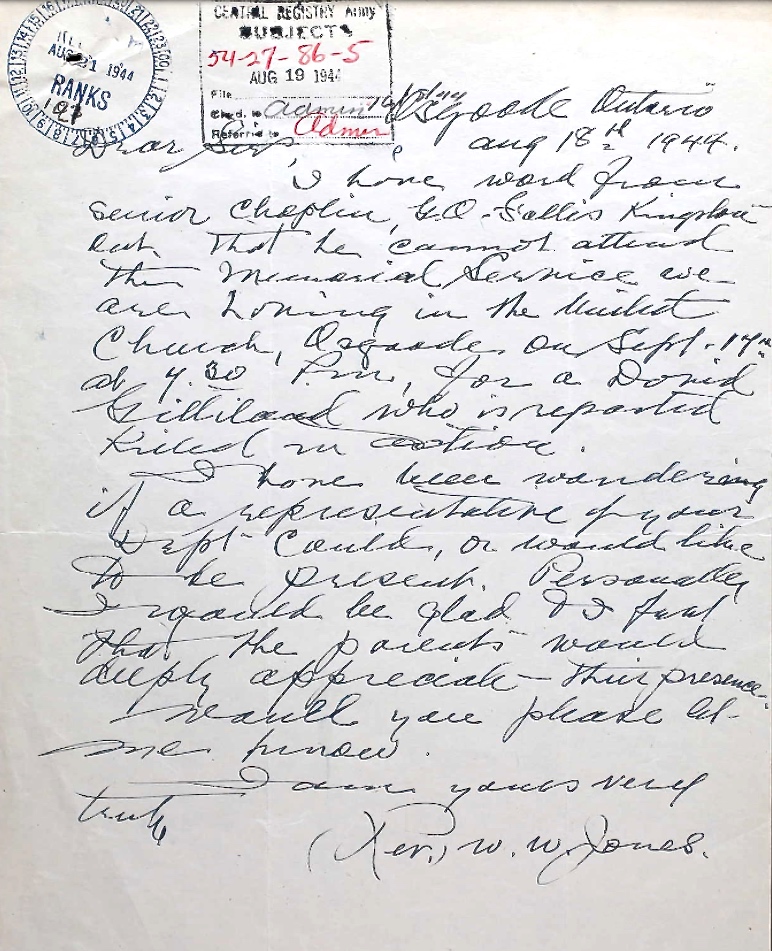 AUG 21 1944
RANKS
CENTRAL REGISTRY Army
SUBJECTS
54-27-86-5
AUG 19 1944
File
Ch'd. to Admin
Referred to Admin
Osgoode Ontario
Aug 18th 1944.
Dear Sir
I have word from
senior Chaplin, G.O. Gallis Kingston
Ont. that he cannot attend
the Memorial Service we
are having in the United
Church, Osgoode on Sept. 17th
at 7.30 P.m., for a David
Gilliland who is reported
Killed in action.
I have been wondering
if a representative of your
Dept could, or would like
to be present. Personally
I would be glad & I feel
that the parents would
deeply appreciate their presence.
Would you please let
me know.
I am yours very
truly
(Rev.) W. W. Jones.